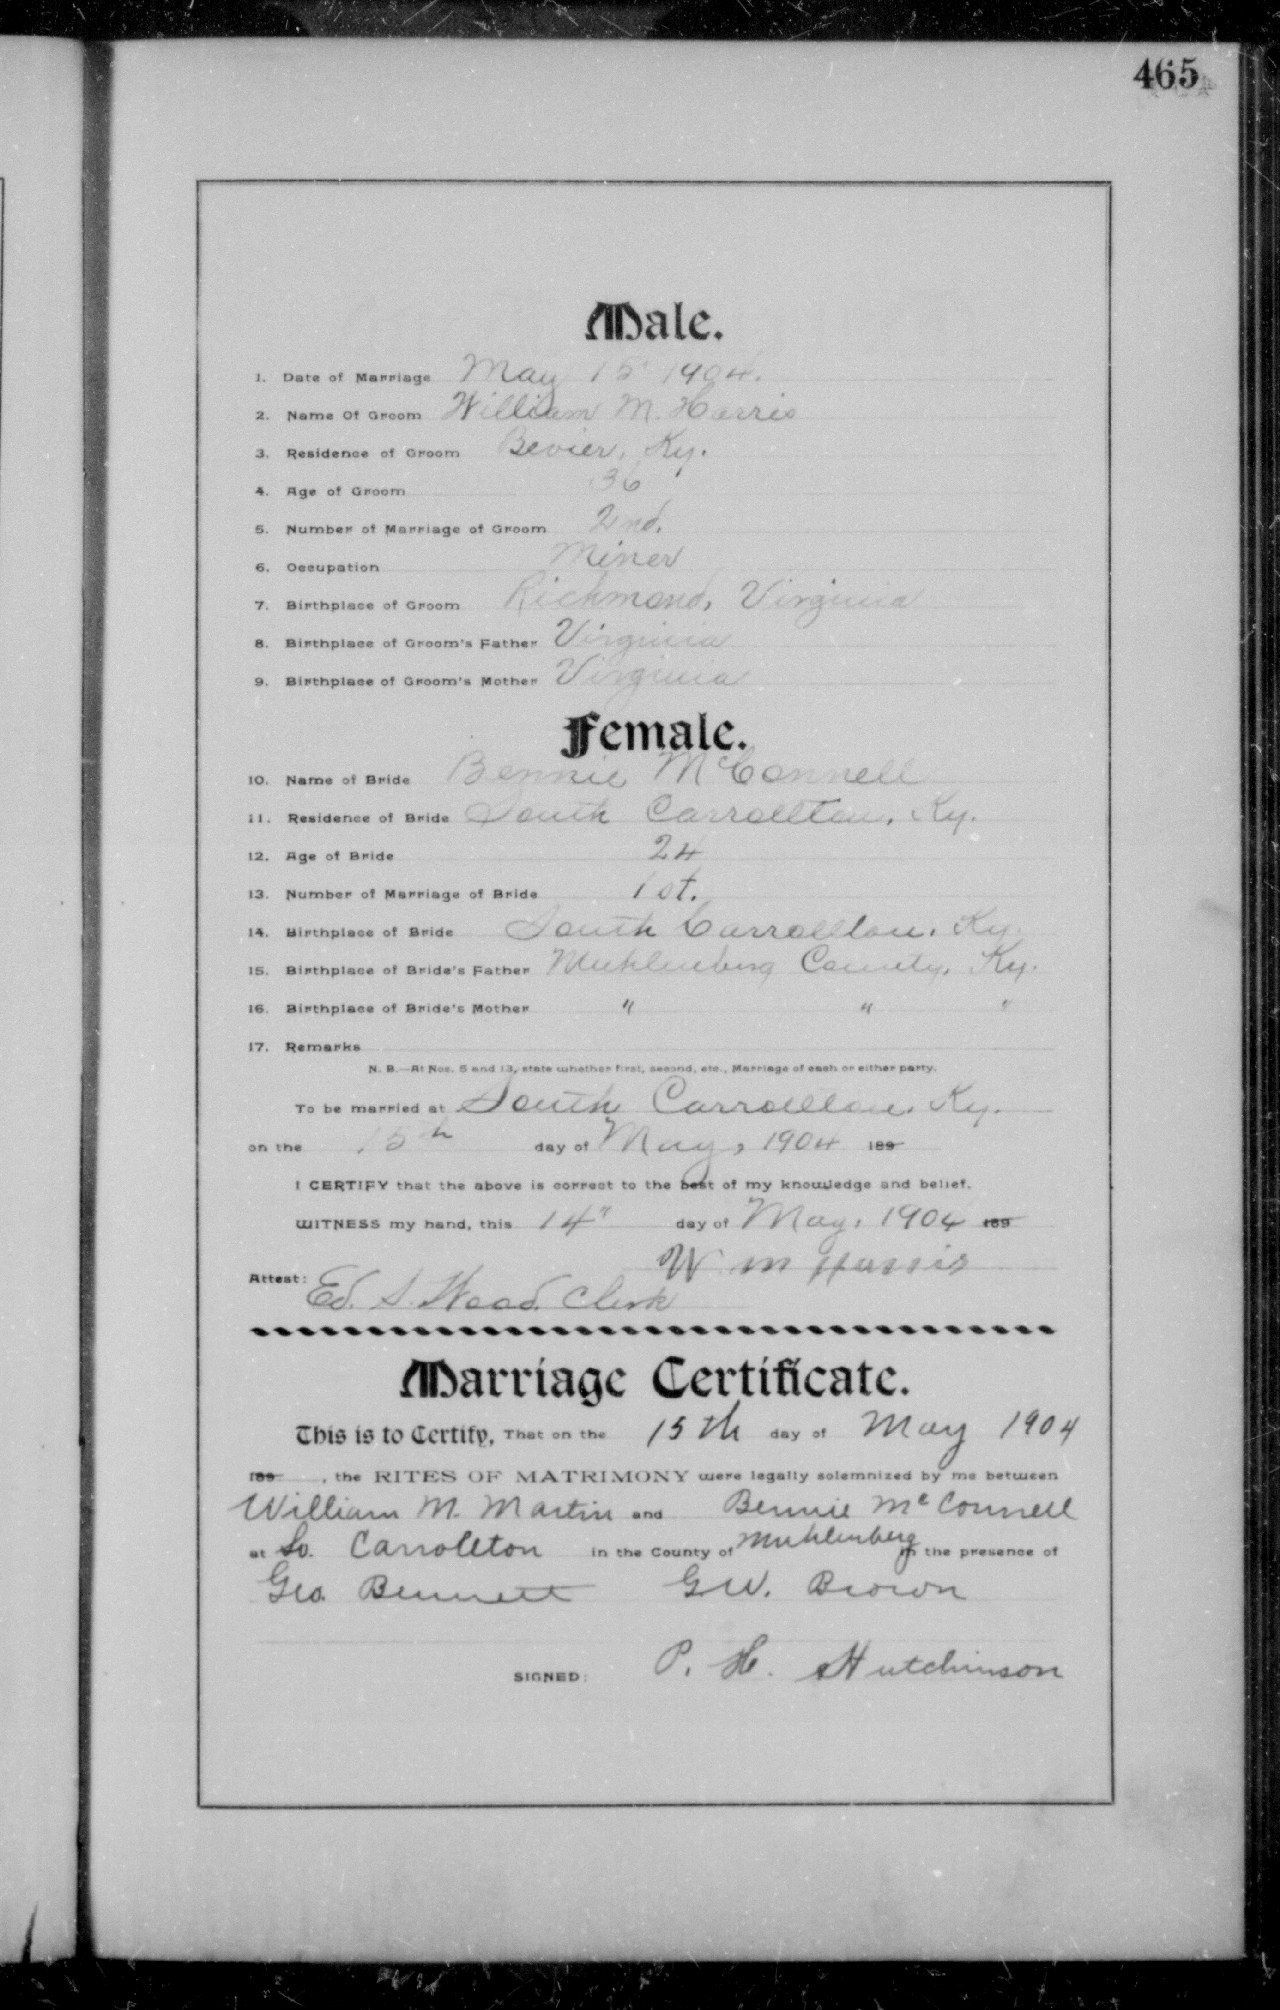 465
Male.
1. Date of Marriage May 15" 1904.
2. Name Of Groom William M. Harris
3. Residence of Groom Bevier, Ky.
4. Age of Groom 36
5. Number of Marriage of Groom 2nd.
6. Occupation Miner
7. Birthplace of Groom Richmond, Virginia
8. Birthplace of Groom's Father Virginia
9. Birthplace of Groom's Mother Virginia
Female.
10. Name of Bride Bennie McConnell
11. Residence of Bride South Carrollton, Ky.
12. Age of Bride 24
13. Number of Marriage of Bride 1st.
14. Birthplace of Bride South Carrollton, Ky.
15. Birthplace of Bride's Father Muhlenberg County, Ky.
16. Birthplace of Bride's Mother " " "
17. Remarks
N. B.—At Nos. 5 and 13, state whether first, second, etc., Marriage of each or either party.
To be married at South Carrollton, Ky.
on the 15th day of May, 1904 189
I CERTIFY that the above is correct to the best of my knowledge and belief.
WITNESS my hand, this 14" day of May, 1904 189
W m Harris
Attest: Ed. S. Wood. Clerk
Marriage Certificate.
This is to Certify, That on the 15th day of May 1904
189 , the RITES OF MATRIMONY were legally solemnized by me between
William M. Martin and Bennie McConnell
at So. Carrollton in the County of Muhlenberg in the presence of
Geo. Bennett G.W. Brown
SIGNED: P. H. Hutchinson